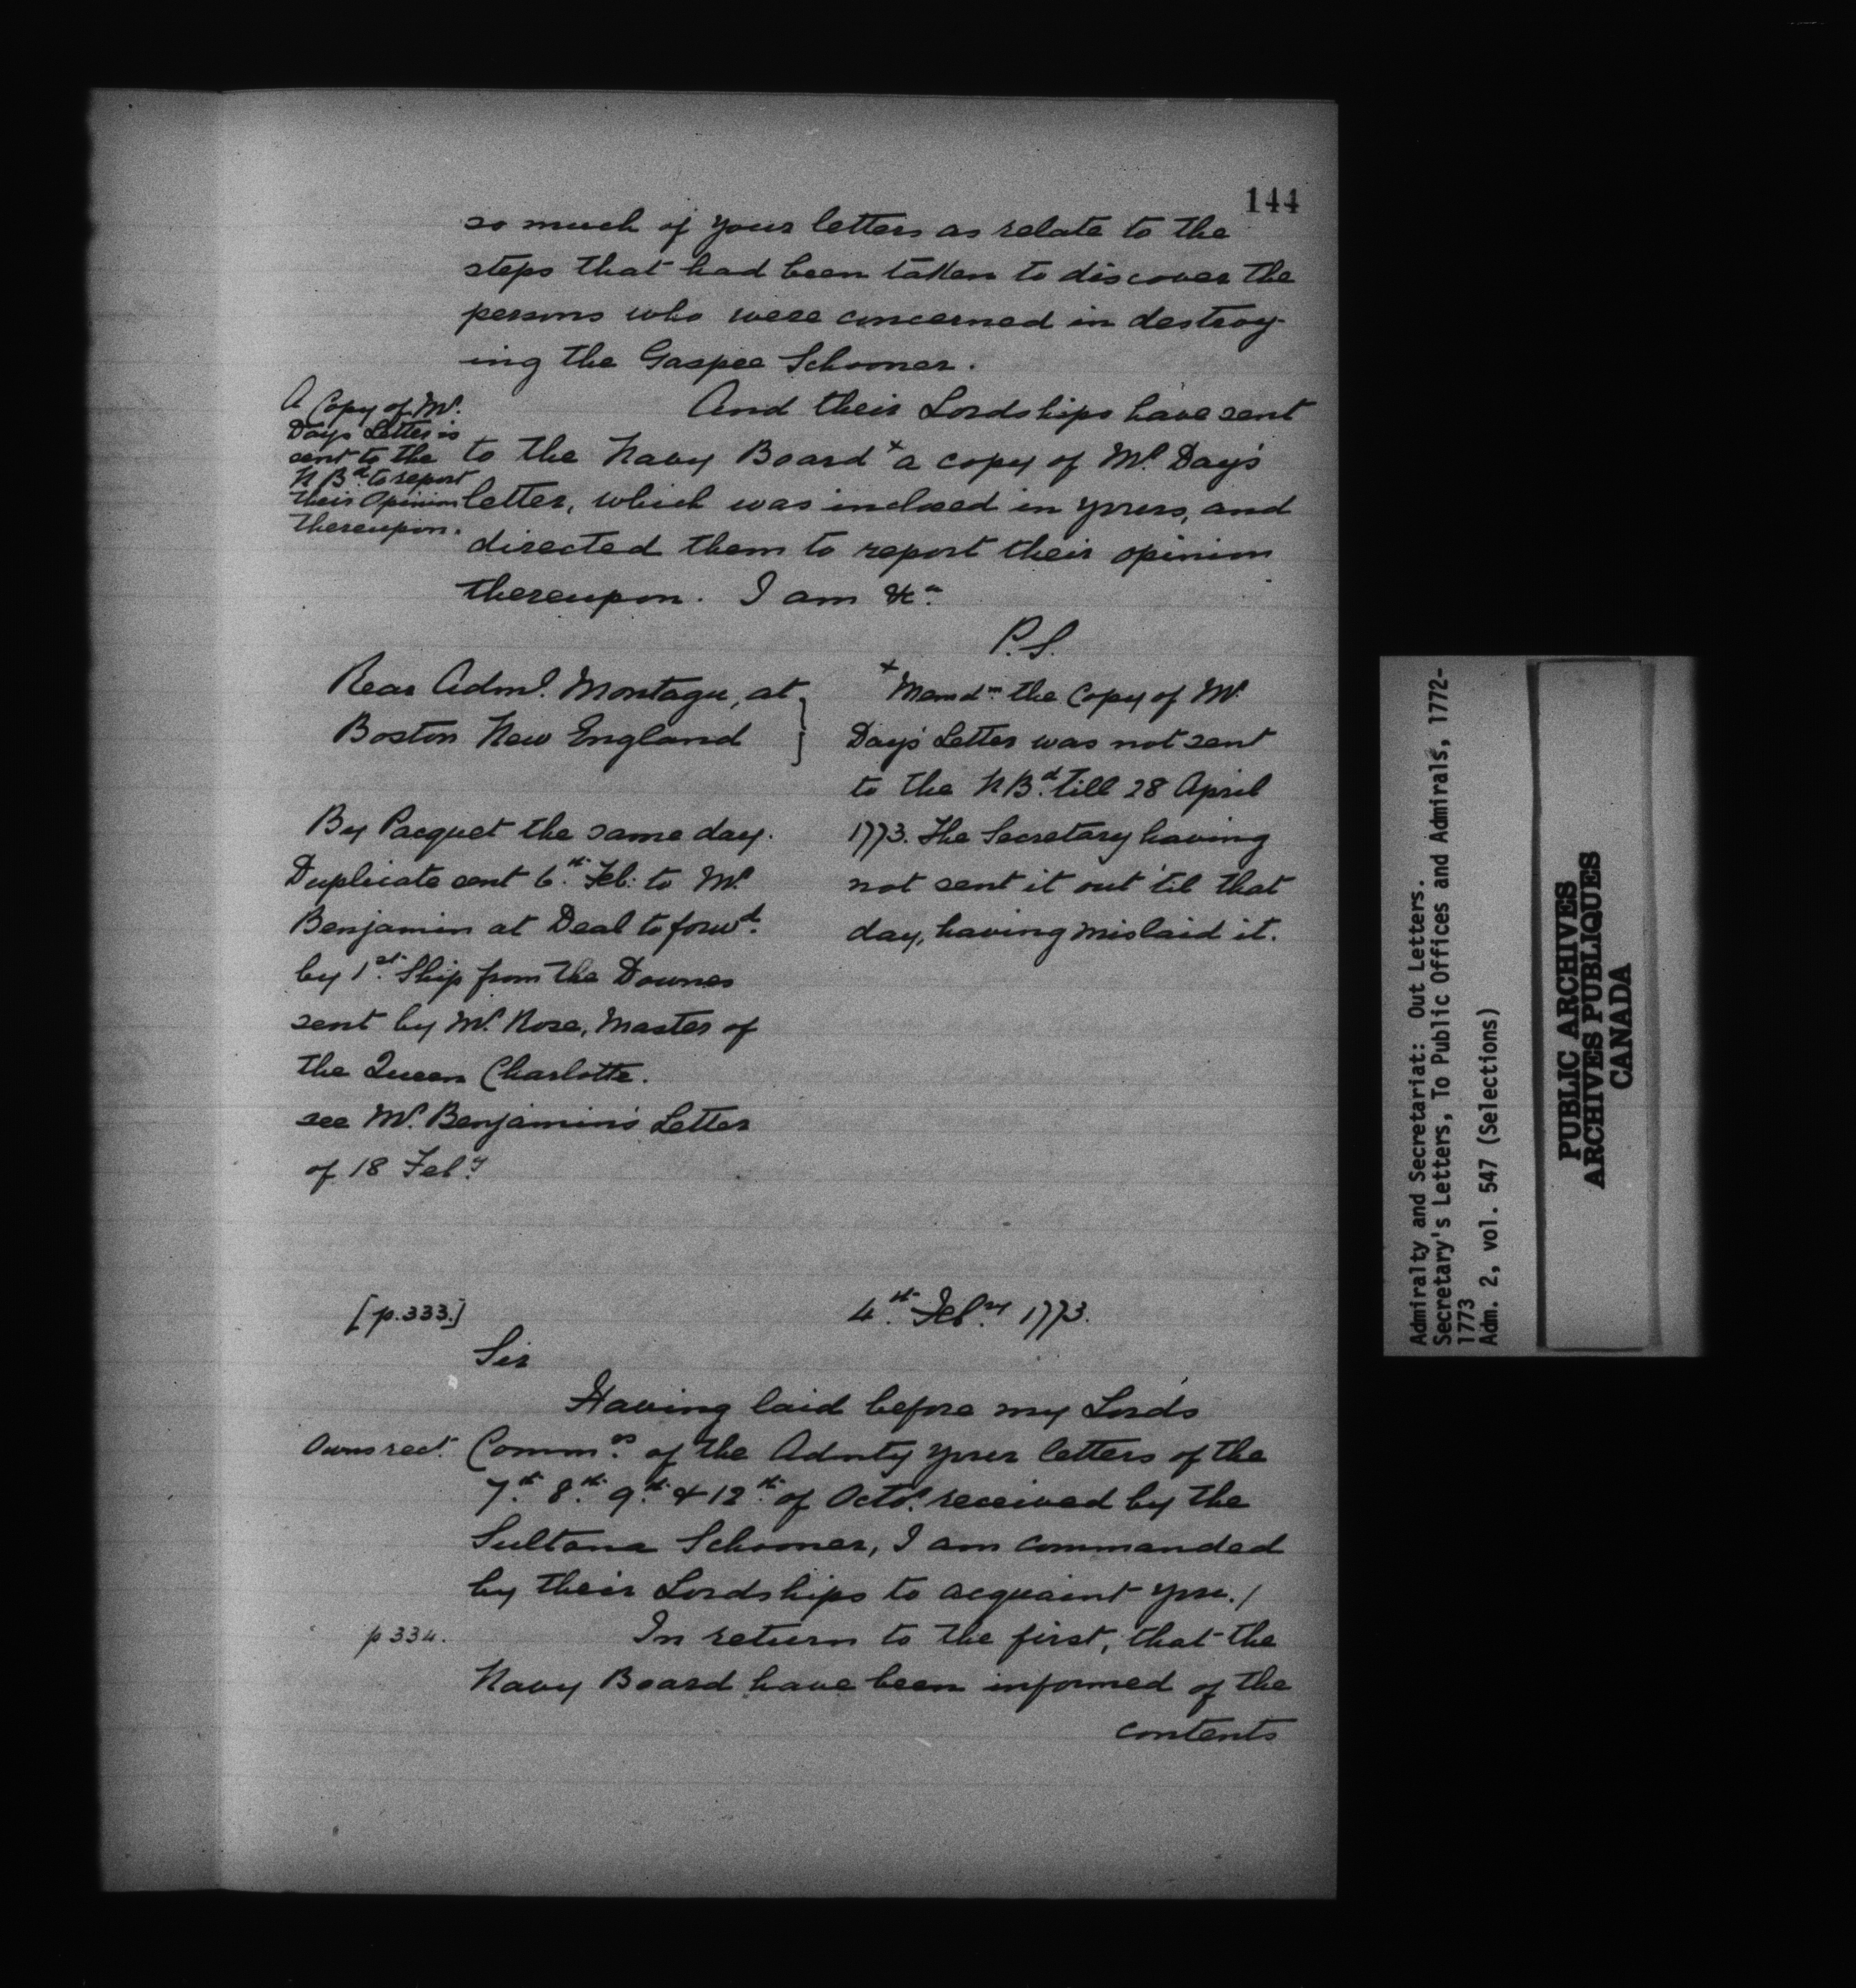 144
so much of your letters as relate to the
steps that had been taken to discover the
persons who were concerned in destroy-
ing the Gaspee Schooner.
And their Lordships have sent
to the Navy Board x a copy of Mr. Day's
letter, which was inclosed in yours, and
directed them to report their opinion
thereupon. I am &c.
A Copy of Mr.
Days Letter is
sent to the
N Bd. to report
their Opinion
thereupon.
Rear Adml. Montagu, at
Boston New England
By Pacquet the same day.
Duplicate sent 6th. Feb: to Mr.
Benjamin at Deal to forwd.
by 1st. Ship from the Downes
sent by Mr. Rose, Master of
the Queen Charlotte.
see Mr. Benjamin's Letter
of 18 Feby.
P.S.
x Memdm. the Copy of Mr.
Day's Letter was not sent
to the N Bd. till 28 April
1773. The Secretary having
not sent it out 'til that
day, having mislaid it.
[p.333.]
4th. Febry. 1773.
Sir
Having laid before my Lords
Commrs. of the Admty your letters of the
7th. 8th. 9th. & 12th. of Octor. received by the
Sultana Schooner, I am commanded
by their Lordships to acquaint you./
p 334.
In return to the first, that the
Navy Board have been informed of the
contents
Admiralty and Secretariat: Out Letters.
Secretary's Letters, To Public Offices and Admirals, 1772-
1773
Adm. 2, vol. 547 (Selections)
PUBLIC ARCHIVES
ARCHIVES PUBLIQUES
CANADA